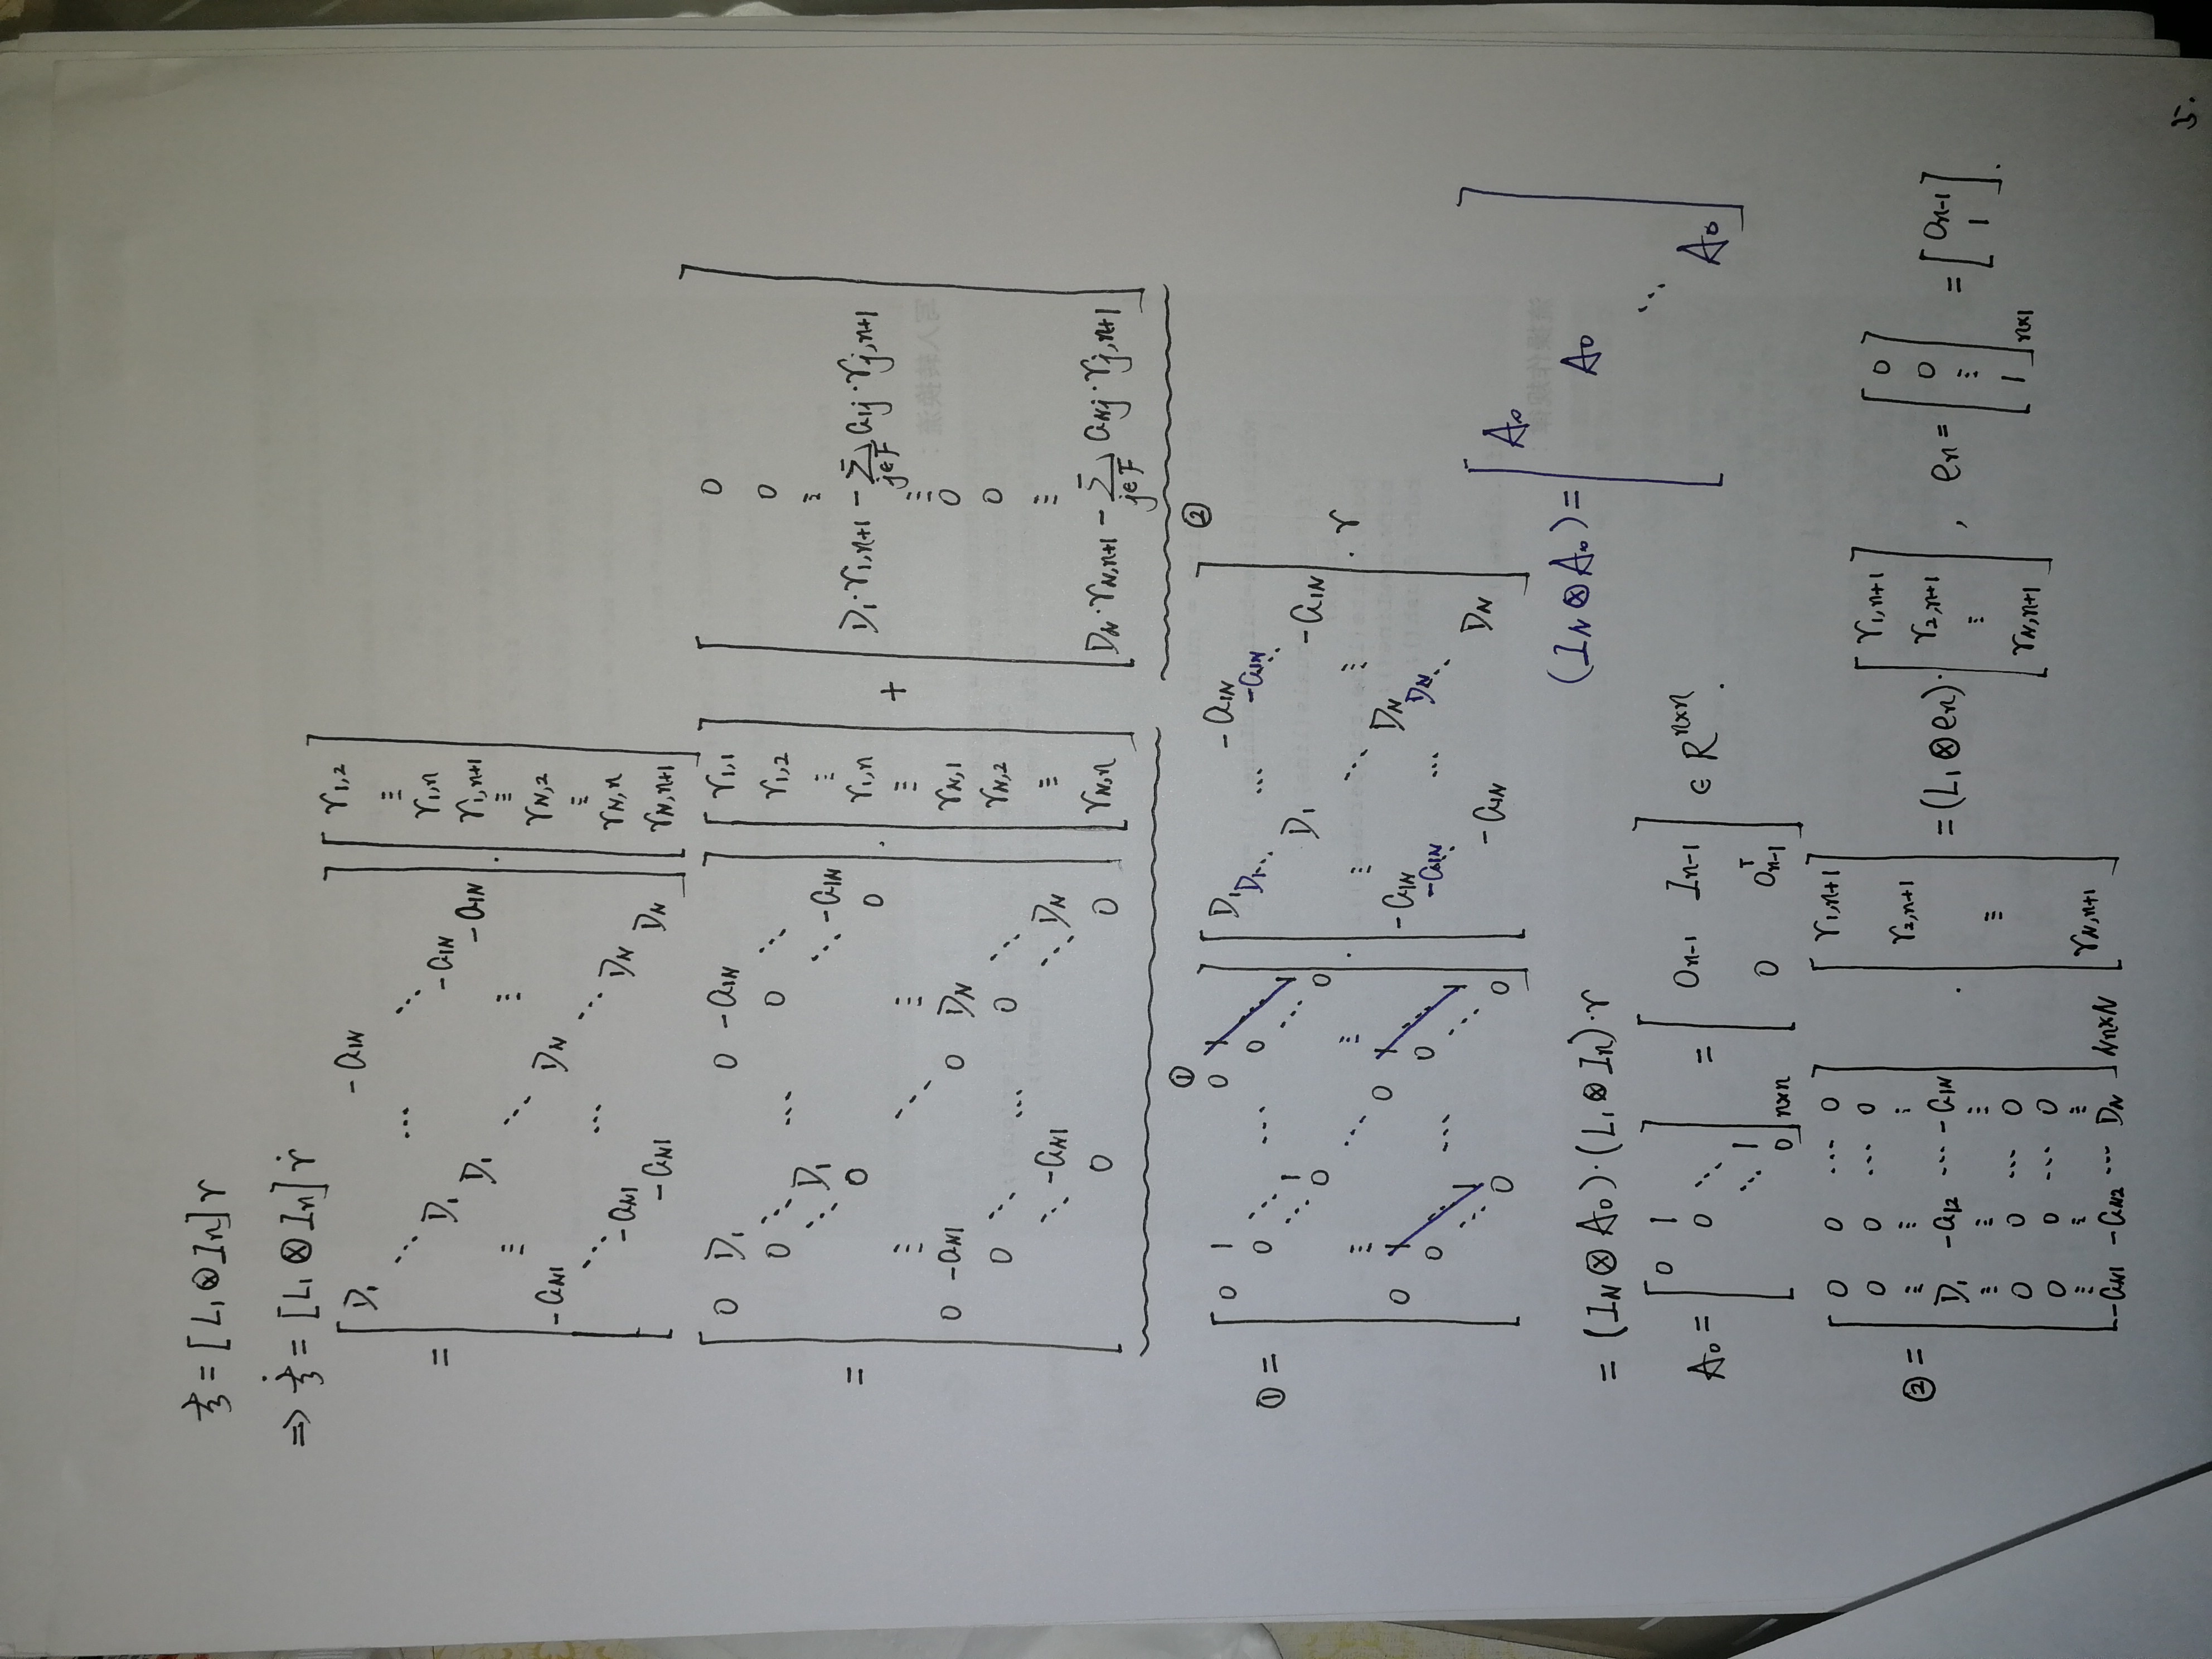 ξ = [L₁ ⊗ Iₙ] r
⇒ ξ̇ = [L₁ ⊗ Iₙ] ṙ
= [ D₁ -a₁N
⋱ ⋯ ⋱
D₁ -a₁N
D₁ -a₁N
⋮ ⋱ ⋮
-aN1 DN
⋱ ⋯ ⋱
-aN1 DN
-aN1 DN ] · [ r₁,₂ ⋮ r₁,n r₁,n+1 ⋮ rN,2 ⋮ rN,n rN,n+1 ]
= [ 0 D₁ 0 -a₁N
0 ⋱ ⋯ 0 ⋱
⋱ D₁ ⋱ -a₁N
0 0
⋮ ⋱ ⋮
0 -aN1 0 DN
0 ⋱ ⋯ 0 ⋱
⋱ -aN1 ⋱ DN
0 0 ] · [ r₁,₁ r₁,₂ ⋮ r₁,n ⋮ rN,1 rN,2 ⋮ rN,n ] + [ 0 0 ⋮ D₁·r₁,n+1 - Σ j∈F a₁j·rj,n+1 ⋮ 0 0 ⋮ DN·rN,n+1 - Σ j∈F aNj·rj,n+1 ]
① ②
① = [ 0 1 0
0 ⋱ ⋯ 0
⋱ 1 ⋱
0 0
⋮ ⋱ ⋮
0 0
0 ⋯ 0
⋱ ⋱
0 0 ] · [ D₁ -a₁N
D₁ ⋱ ⋯ -a₁N ⋱
D₁ -a₁N
⋮ ⋱ ⋮
-a₁N DN
-a₁N ⋱ ⋯ DN ⋱
-a₁N DN ] · r
= (IN ⊗ A₀)·(L₁ ⊗ Iₙ)·r
(IN ⊗ A₀) = [ A₀
A₀
⋱
A₀ ]
A₀ = [ 0 1
0 ⋱
⋱ 1
0 ]n×n = [ 0n-1 In-1
0 0ᵀn-1 ] ∈ Rⁿˣⁿ.
② = [ 0 0 ⋯ 0
0 0 ⋯ 0
⋮ ⋮ ⋮
D₁ -a₁₂ ⋯ -a₁N
⋮ ⋮ ⋮
0 0 ⋯ 0
0 0 ⋯ 0
⋮ ⋮ ⋮
-aN1 -aN2 ⋯ DN ]Nn×N · [ r₁,n+1 r₂,n+1 ⋮ rN,n+1 ] = (L₁ ⊗ eₙ)· [ r₁,n+1 r₂,n+1 ⋮ rN,n+1 ] , eₙ = [ 0 0 ⋮ 1 ]n×1 = [ 0n-1 1 ].
5.